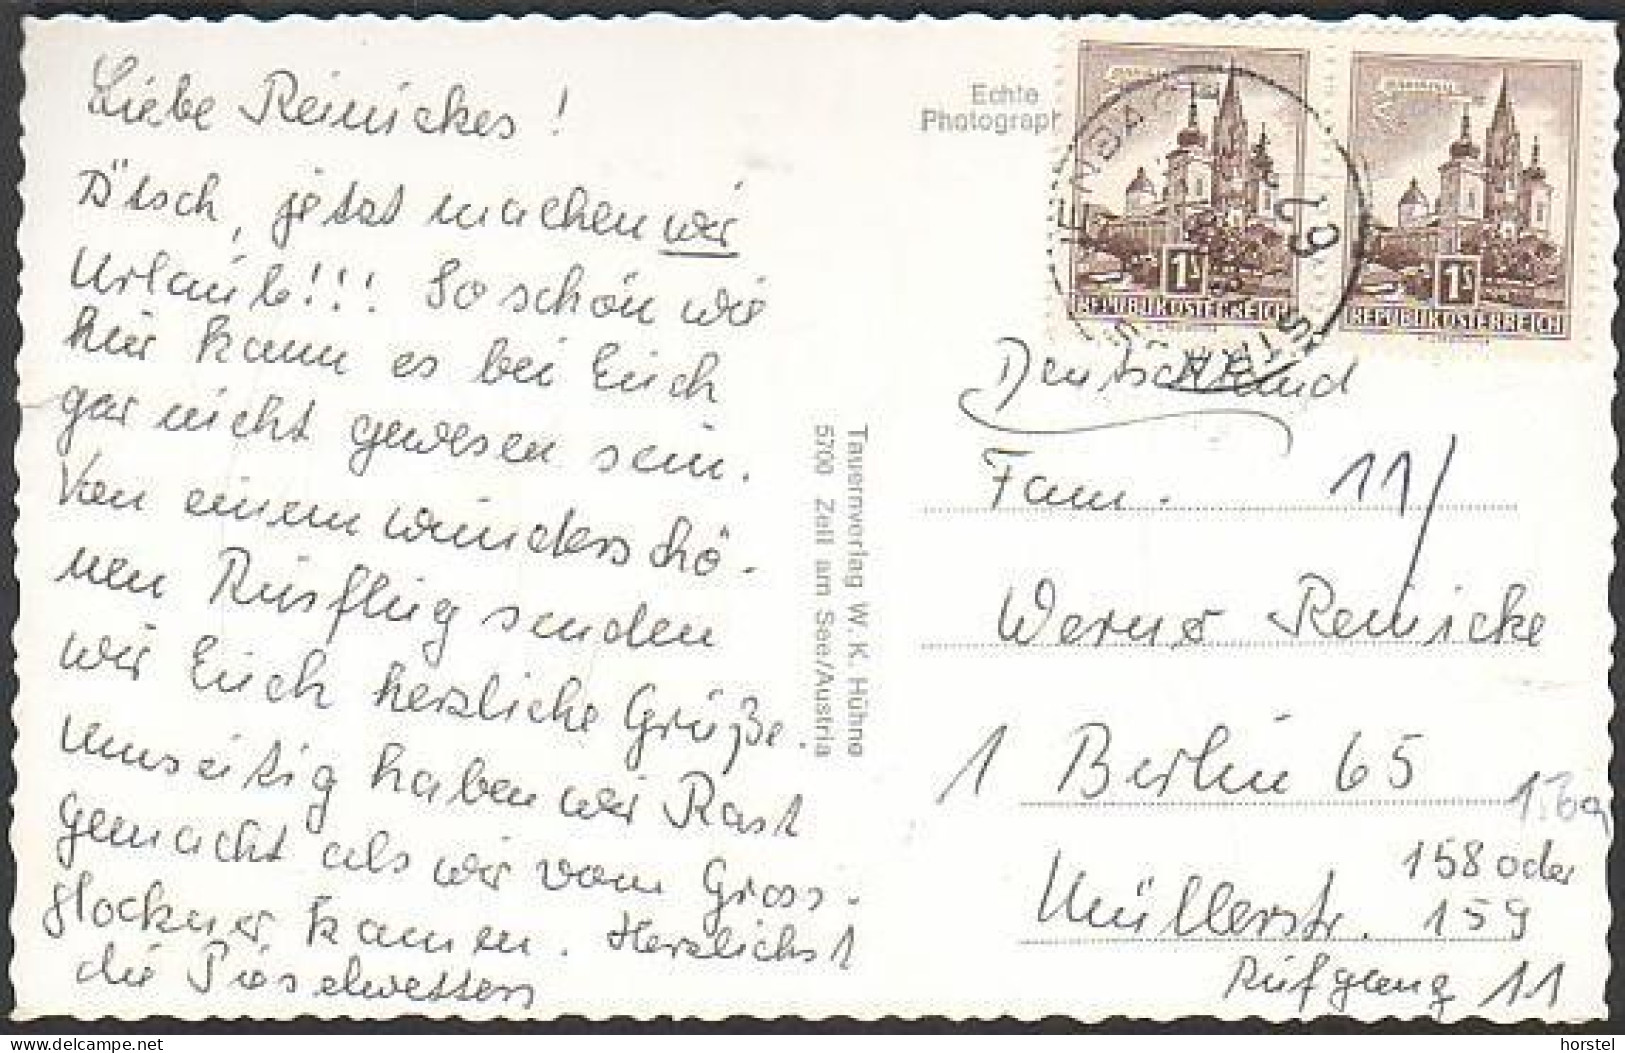 Liebe Reinickes!
Ätsch, jetzt machen wir
Urlaub!!! So schön wie
hier kann es bei Euch
gar nicht gewesen sein.
Von einem wunderschö-
nen Ausflug senden
wir Euch herzliche Grüße.
Umseitig haben wir Rast
gemacht als wir vom Gross-
glockner kamen. Herzlichst
die
Echte
Photograph
MARIAZELL
1S
REPUBLIK ÖSTERREICH
MARIAZELL
1S
REPUBLIK ÖSTERREICH
Tauernverlag W. K. Hühne
5700 Zell am See/Austria
Deutschland
Fam. 11/
Werner Reinicke
1 Berlin 65
158 oder
Müllerstr. 159
Aufgang 11
delcampe.net
horstel